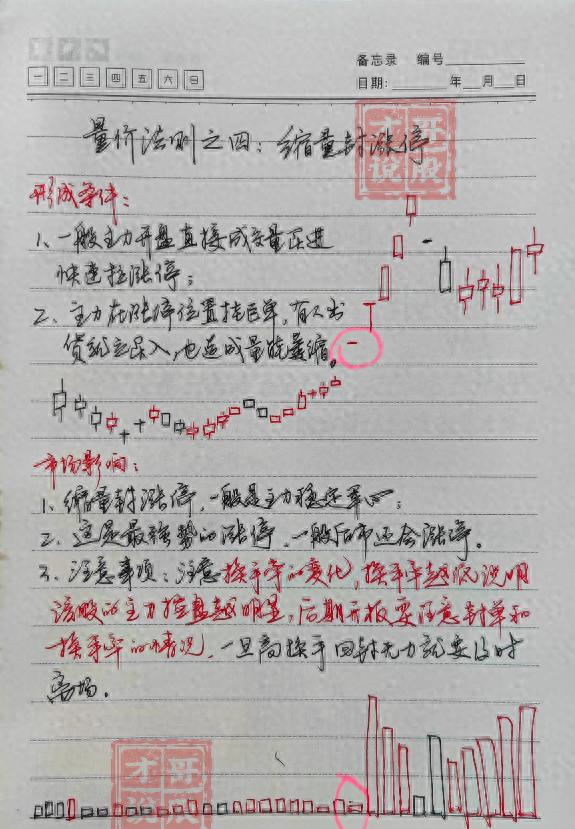 备忘录 编号
一 二 三 四 五 六 日
日期： 年 月 日
才哥说股
量价法则之四：缩量封涨停
形成条件：
1、一般主力开盘直接成交量跃进
快速拉涨停；
2、主力在涨停位置挂巨单，有人出
货就立足入，也造成量能萎缩。
市场影响：
1、缩量封涨停，一般是主力稳定军心；
2、这是最强势的涨停，一般后市还会涨停。
3、注意事项：注意换手率的变化，换手率越低说明
该股的主力控盘越明显，后期开板要注意封单和
换手率的情况，一旦高换手回封无力就要及时
离场。
才哥说股